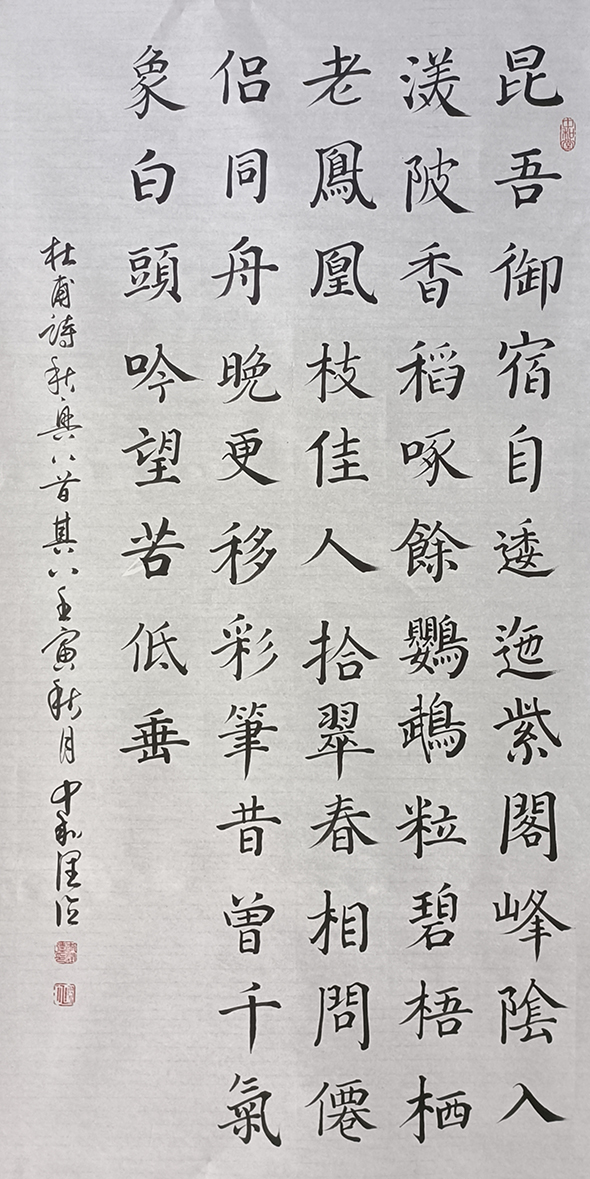 昆吾御宿自逶迤紫閣峰陰入
渼陂香稻啄餘鸚鵡粒碧梧栖
老鳳凰枝佳人拾翠春相問僊
侣同舟晚更移彩筆昔曾千氣
象白頭吟望苦低垂
杜甫詩秋興八首其八壬寅秋月中和